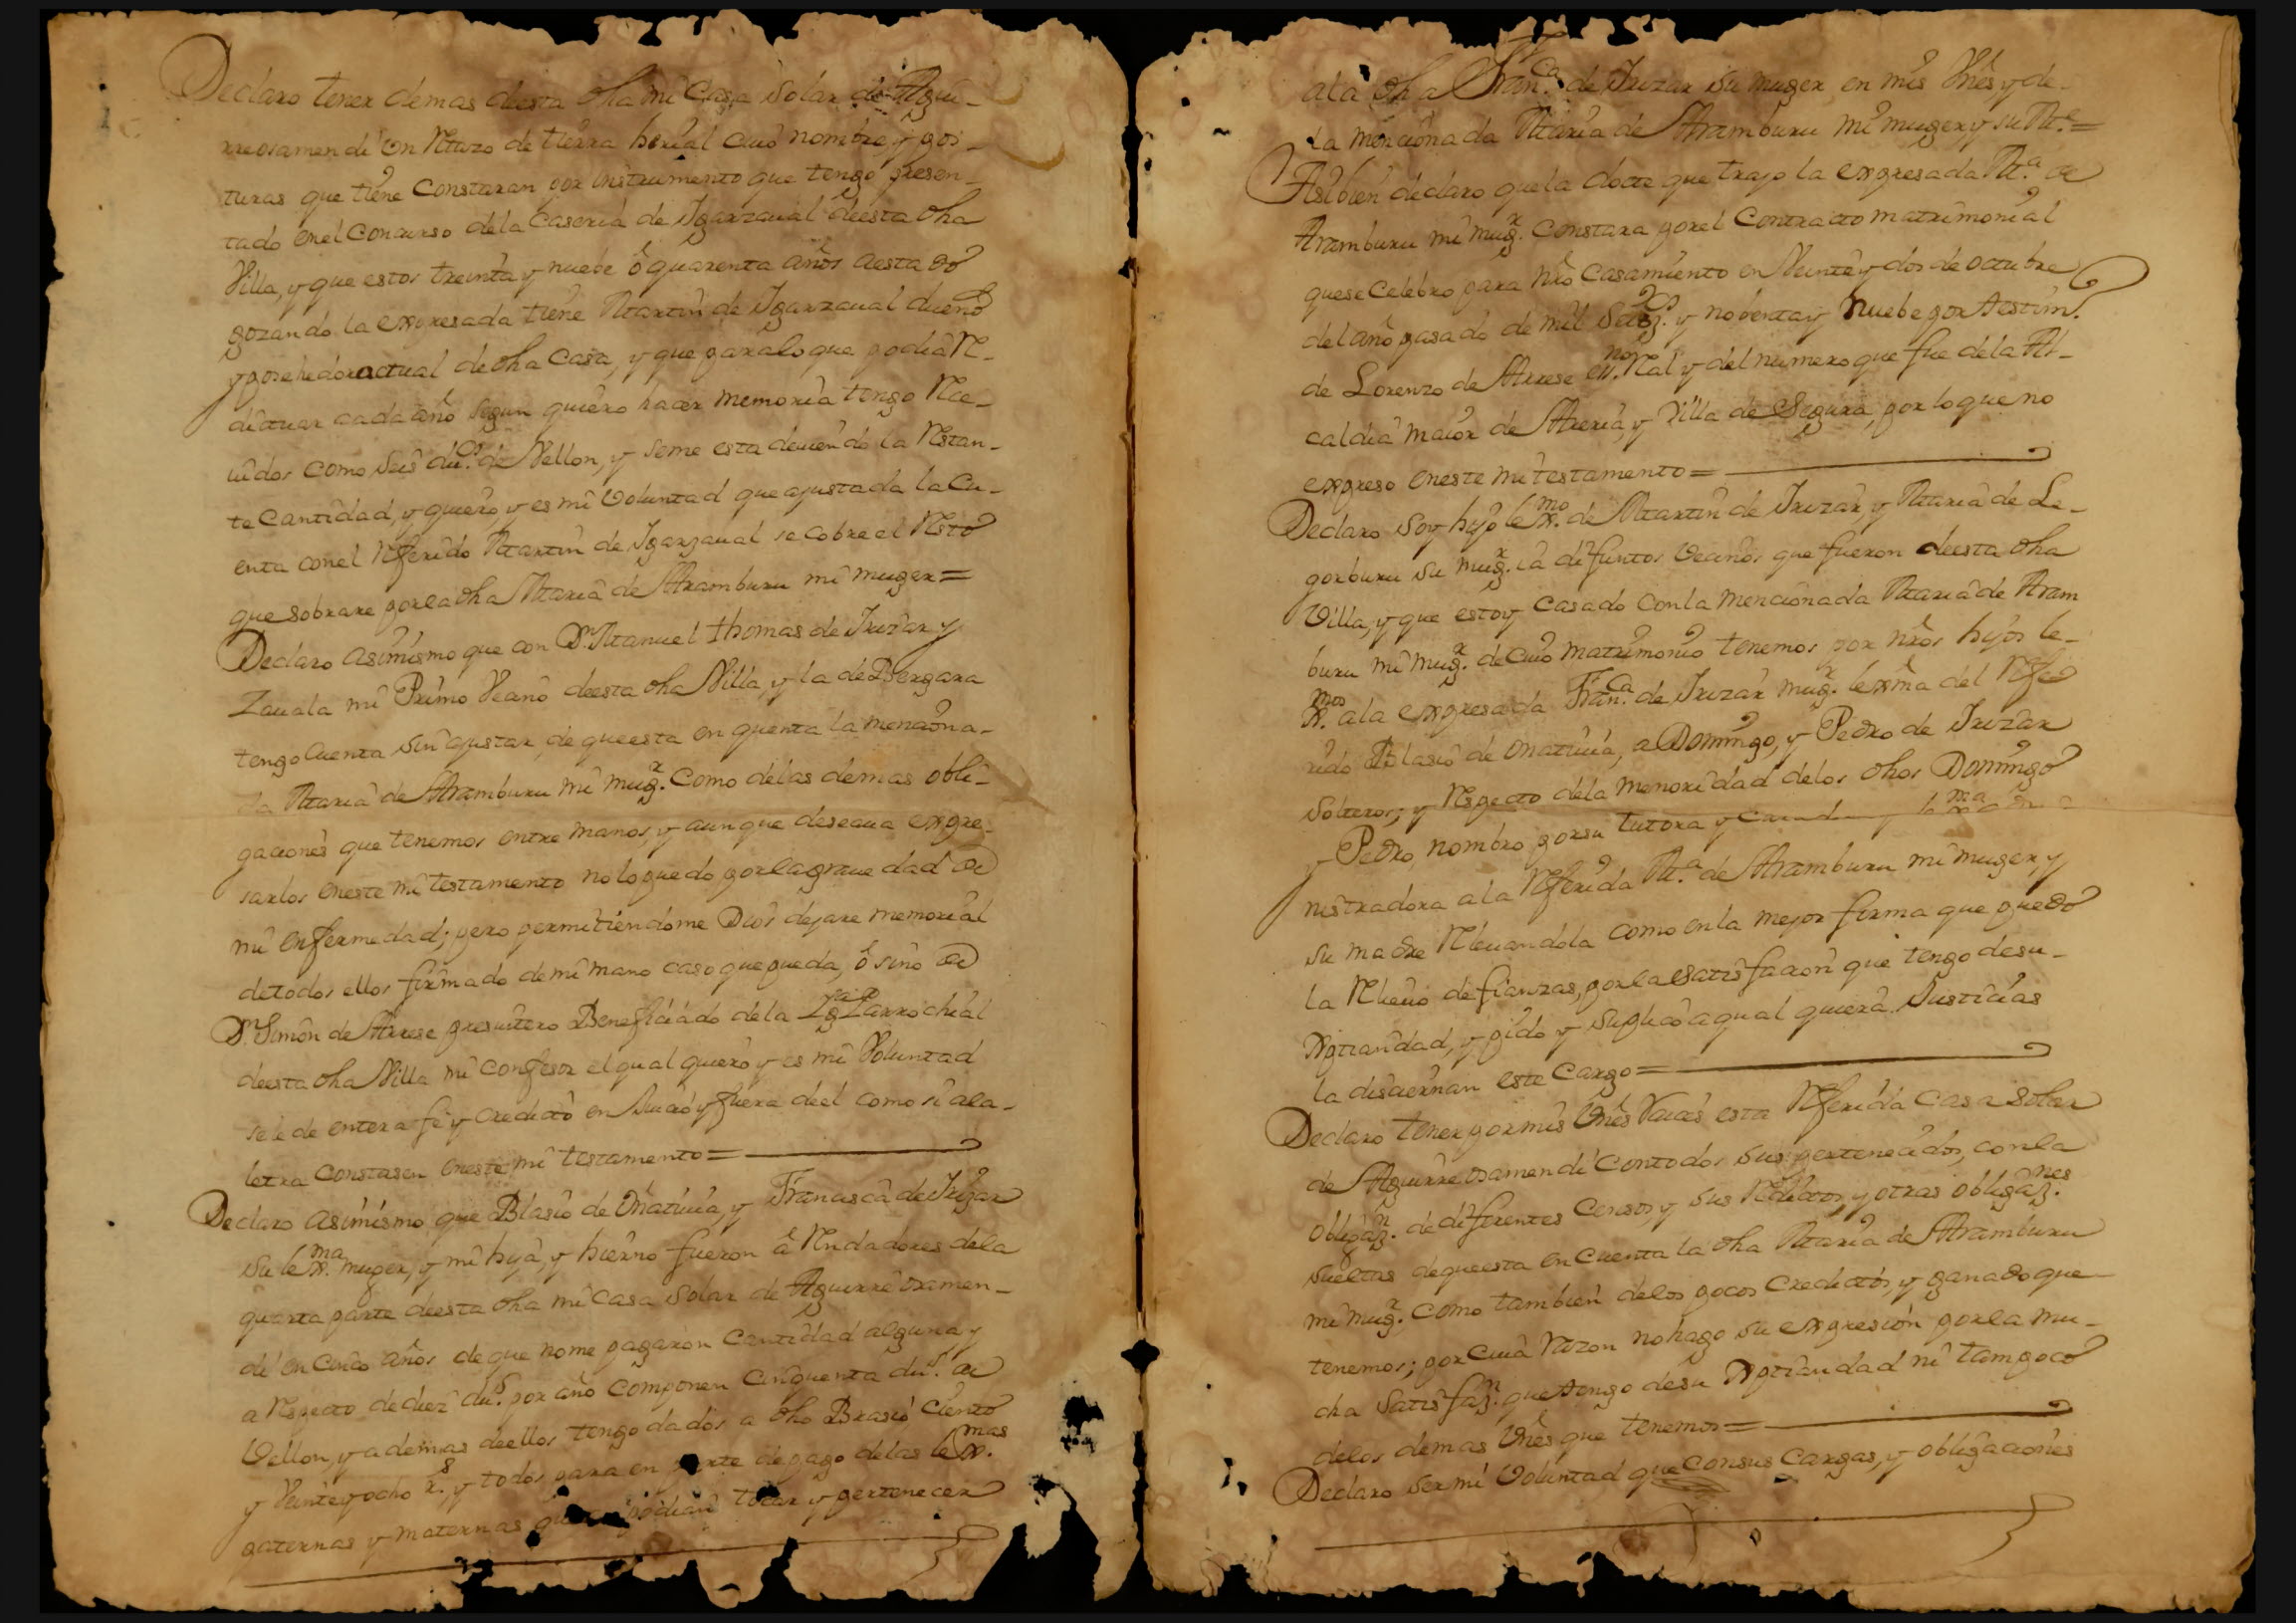 Declaro tener demas deesta dha mi Casa Solar de Agui-
rreosamendi un Mazo de tierra herial cuio nombre, y pos-
turas que tiene Constaran por instrumento que tengo presen-
tado enel Concurso dela Caseria de Ygarzaual deesta dha
Villa, y que estos treinta y nuebe ô quarenta años aesta do
gozando la expresada tiene Martin de Ygarzaual dueño
y posehedor actual de dha Casa, y que paralo que podia Re-
dictuar cada año segun quiero hacer memoria tengo Rce-
uidos como seis du.os de Vellon, y seme esta deuiendo la Restan-
te Cantidad, y quiero, y es mi Voluntad que ajustada la Cu-
enta conel Rferido Martin de Ygarzaual se cobre el Resto
que sobrare por la dha Maria de Aramburu mi muger=
Declaro asimismo que con Dn. Manuel thomas de Yrizar y
Zauala mi Primo Vecino deesta dha Villa, y la de Bergara
tengo Cuenta sin ajustar, de que esta en quenta la menciona-
da Maria de Aramburu mi mugr. Como delas demas obli-
gaciones que tenemos entre manos, y aun que deseaua expre-
sarlos eneste mi testamento nolo puedo por la grauedad de
mi enfermedad; pero permitiendome Dios dejare memorial
detodos ellos firmado de mi mano caso que pueda, ô sino de
Dn. Simon de Arrese presuitero Beneficiado dela Yg.a Parrochial
deesta dha Villa mi Confesor el qual quiero y es mi Voluntad
sele de entera fe y credicto en Juicio y fuera deel como si ala-
letra constasen eneste mi testamento=
Declaro asimismo que Blasio de Oñatiuia, y Francisca de Yrizar
su lex.ma muger, y mi hija, y hierno fueron â Rendadores dela
quarta parte deesta dha mi Casa Solar de Aguirre osamen-
di en Cinco años de que nome pagaron Cantidad alguna y
a Respecto de diez du.s por año componen Cinquenta du.s de
Vellon, y ademas deellos tengo dados a dho Brasio Ciento
y Veinte y ocho R.s y todos para en parte de pago delas lex.mas
paternas y maternas que podian tocar y pertenecer
ala dha Fran.ca de Yrizar su muger en mis Vnes y de-
la mencionada Maria de Aramburu mi muger, y su M.e=
Asibien declaro que la docte que trajo la expresada M.a de
Aramburu mi mugr. Constara por el Contracto matrimonial
que se Celebro para nro Casamiento en Veinte y dos de octubre
del año pasado de mil Setez.os y nobenta y Nuebe por Testim.o
de Lorenzo de Arrese es.no Real y del numero que fue dela Al-
caldia maior de Areria, y Villa de Segura, por lo que no
expreso eneste mi testamento=
Declaro Soy hijo lex.mo de Martin de Yrizar, y Maria de Le-
gorburu su mugr. ia difuntos Vecinos que fueron deesta dha
Villa, y que estoy Casado Con la mencionada Maria de Aram
buru mi mugr. de Cuio matrimonio tenemos por nros hijos le-
x.mos ala expresada Fran.ca de Yrizar mugr. lexma del Rfe
rido Blasio de Oñatiuia, a Domingo, y Pedro de Yrizar
Solteros; y Respecto dela menoridad delos dhos Domingo
y Pedro, nombro por su tutora y
nistradora ala Rferida M.a de Aramburu mi muger, y
su madre Releuandola como en la mejor forma que puedo
la Relieuo de fianzas, por la Satisfacion que tengo de su
Xptiandad, y pido y suplico a qual quiera Justicias
la disciernan este Cargo=
Declaro tener por mis Vnes Raices esta Rferida Casa Solar
de Aguirre osamendi Con todos sus pertenecidos, con la
obligaz.n de diferentes Censos, y sus Redictos, y otras obligaz.nes
sueltas de que esta en Cuenta la dha Maria de Aramburu
mi mugr. Como tambien delos pocos Credictos, y ganado que
tenemos; por Cuia Razon no hago su expresion por la mu-
cha Satisfaz.n que tengo de su Xptiandad ni tampoco
delos demas Vnes que tenemos=
Declaro ser mi Voluntad que Con sus Cargas, y obligaciones